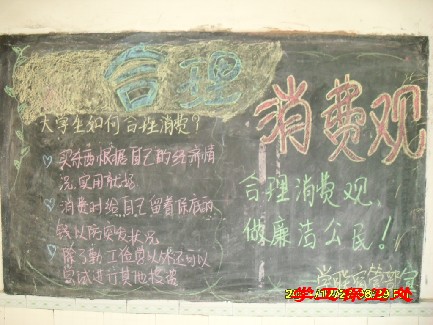 合理
消费观
大学生如何合理消费?
买东西根据自己的经济情
况,实用就好
消费时给自己留着保底的
钱以防突发状况
除了勤工俭学以外还可以
尝试进行其他投资
合理消费观,
做廉洁公民!